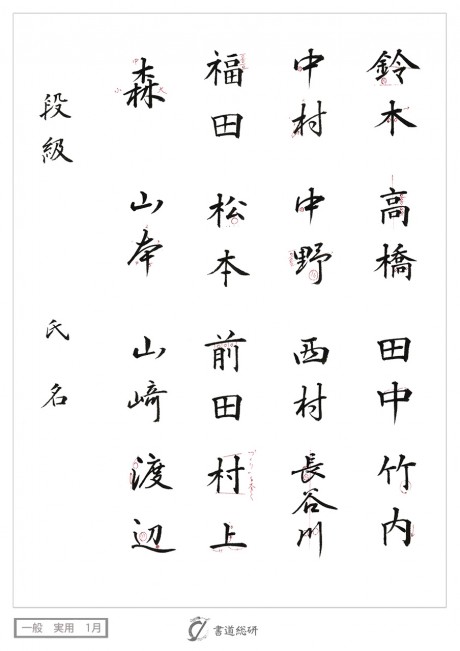 鈴木 高橋 田中 竹内
中村 中野 西村 長谷川
福田 松本 前田 村上
森 山本 山﨑 渡辺
段級 氏名
一般 実用 1月
書道総研